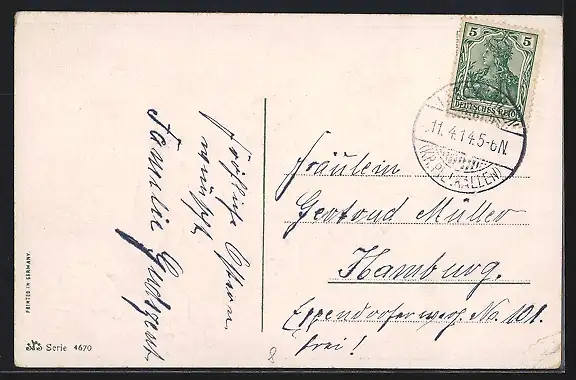 Fröhliche Ostern
wünscht
Familie
5 5
DEUTSCHES REICH
11.4.14.5-6N.
Fräulein
Gertrud Müller
Hamburg.
Eppendorferweg No. 101.
frei!
PRINTED IN GERMANY.
Serie 4670
8